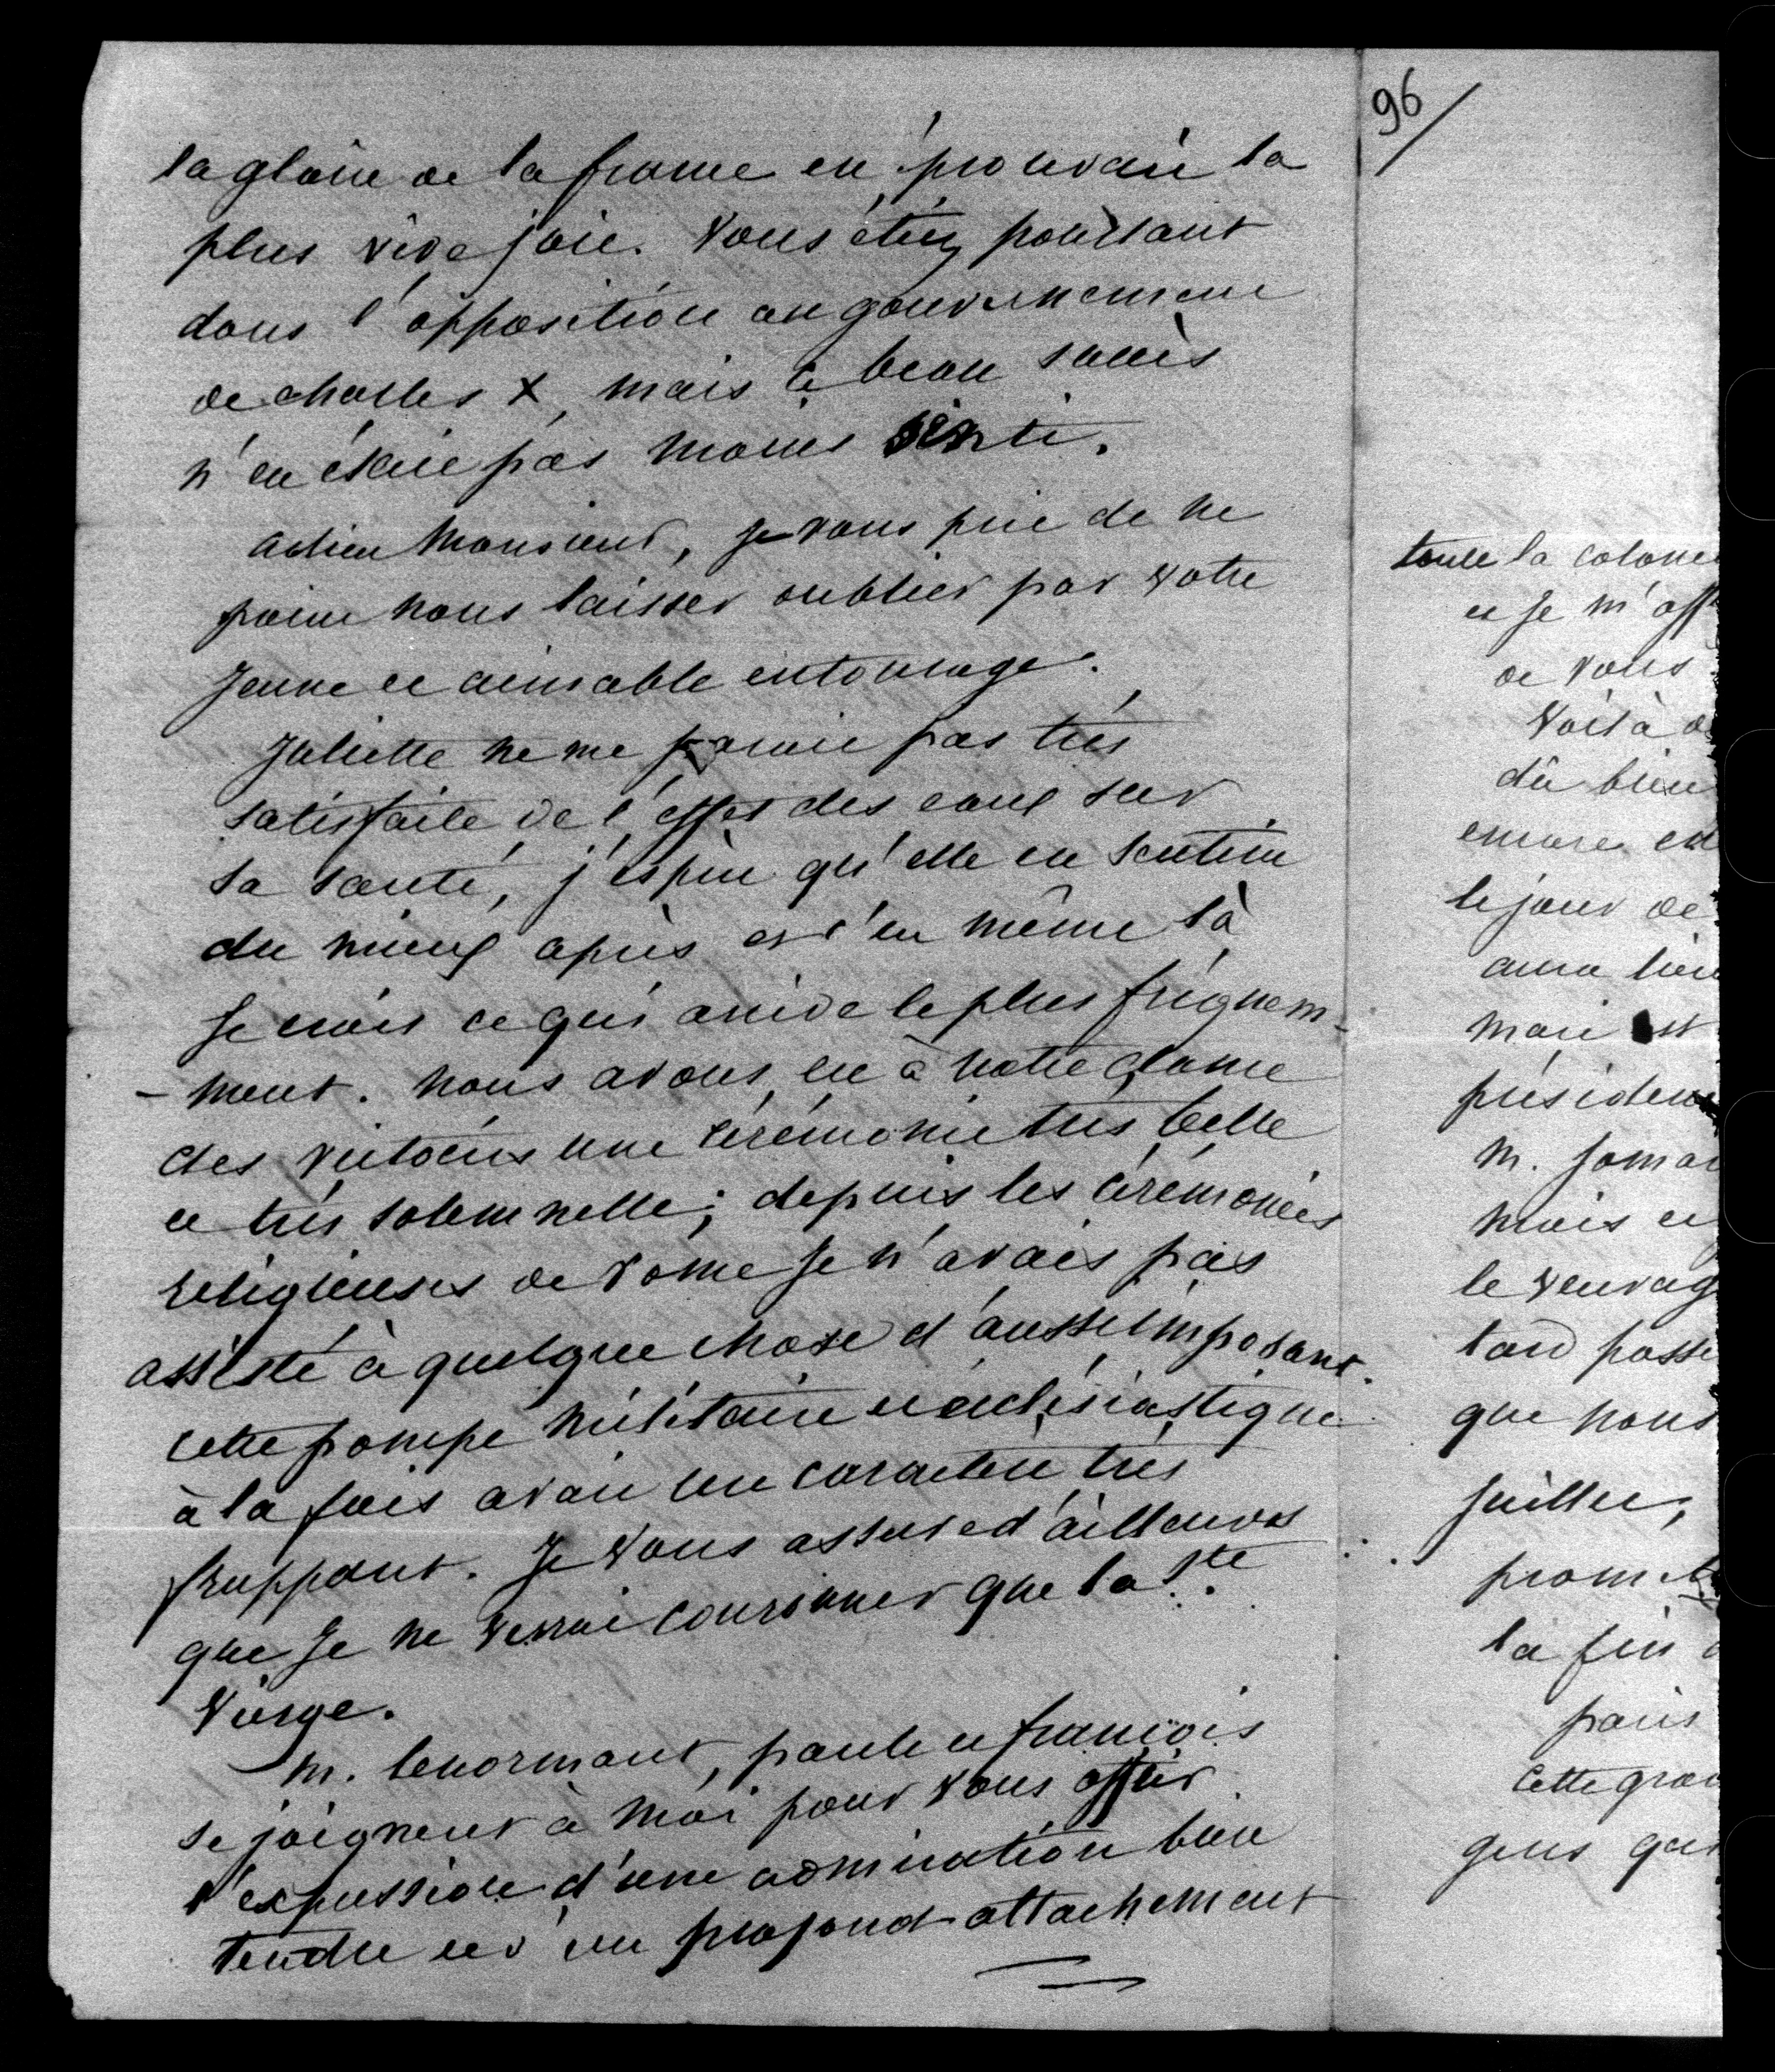 la gloire de la france en éprouvait la
plus vive joie. Vous étiez pourtant
dans l'opposition au gouvernement
de charles X, mais ce beau succès
n'en était pas moins senti.
adieu Monsieur, je vous prie de ne
point nous laisser oublier par votre
jeune et aimable entourage.
Juliette ne me paraît pas très
satisfaite de l'effet des eaux sur
sa santé, j'espère qu'elle en sentira
du mieux après et c'en même là
je crois ce qui arrive le plus fréquem-
-ment. nous avons eu à notre dame
des victoires une cérémonie très belle
et très solemnelle; depuis les cérémonies
religieuses de rome je n'avais pas
assisté à quelque chose d'aussi imposant.
cette pompe militaire et ecclésiastique
à la fois avait un caractère très
frappant. Je vous assure d'ailleurs
que je ne verrai couronner que la Ste
Vierge.
M. lenormant, paule et françois
se joignent à moi pour vous offrir
l'expression d'une admiration bien
tendre et d'un profond attachement
96/
toute la colonie
et je m'aff
de vous
Voilà
dû bien
encore
le jour de
aura lieu
mari est
présiden
M.
mais
le veuvag
tard passe
que nous
juillet,
promet
la fin
paris
cette gran
gens qui